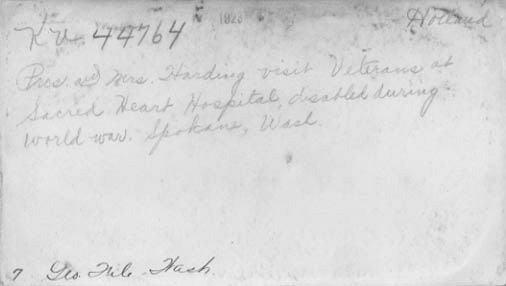 1923
Holland
KU-44764
Pres. and Mrs. Harding visit Veterans at
Sacred Heart Hospital, disabled during
world war. Spokane, Wash
7 Geo. File - Wash.